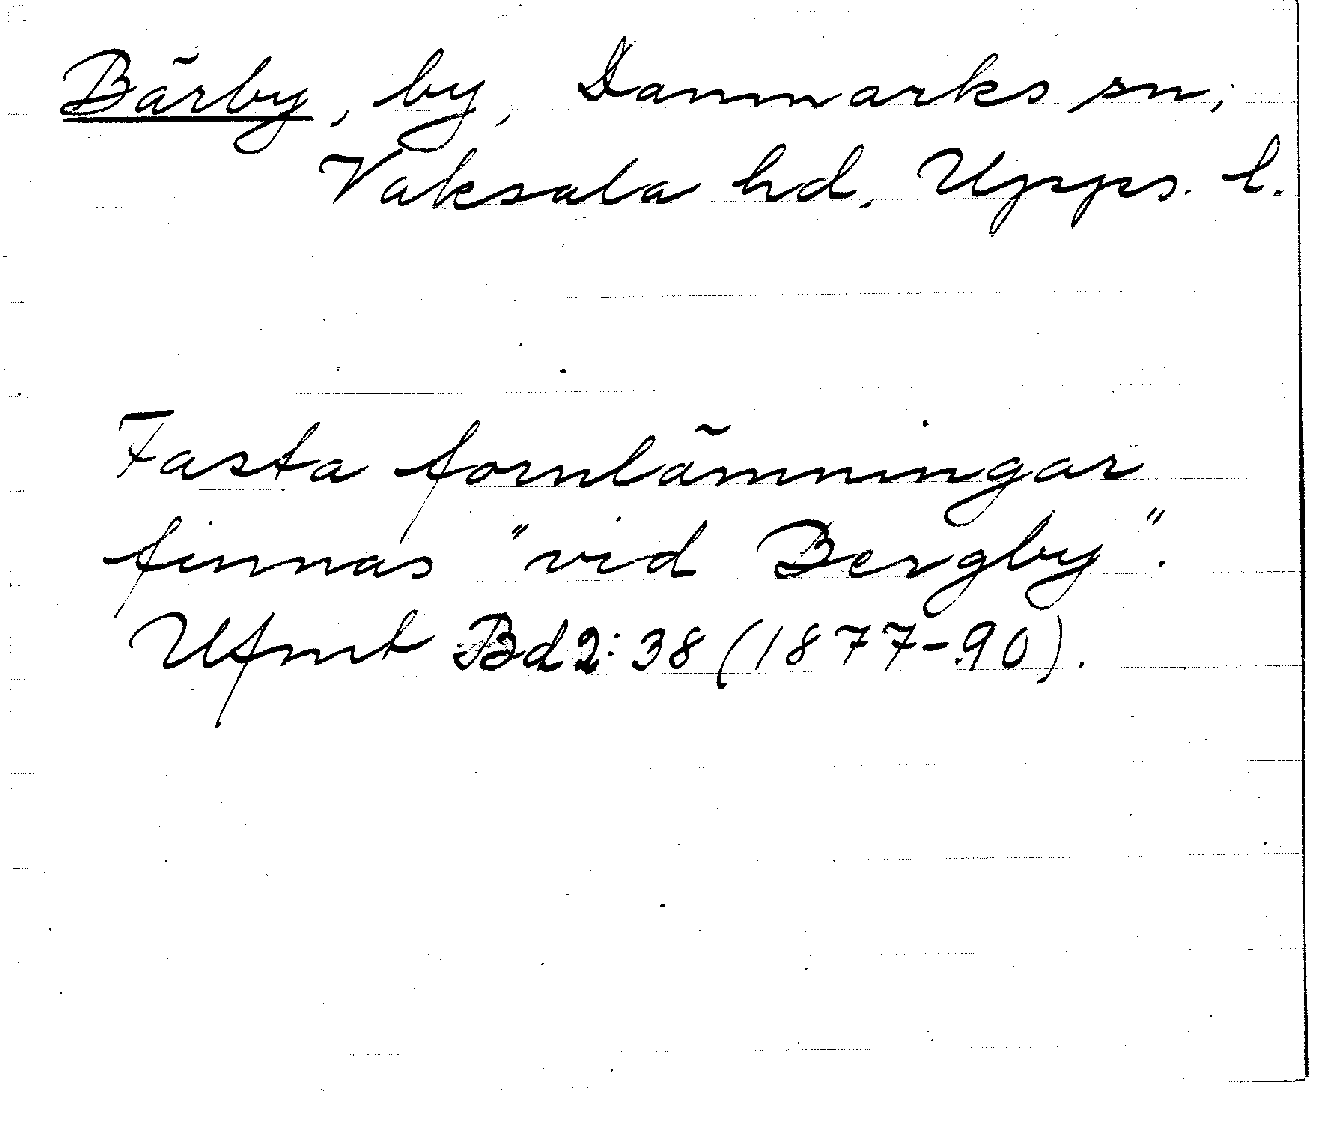 Bärby, by, Danmarks sn,
Vaksala hd. Upps. l.
Fasta fornlämningar
finnas "vid Bergby".
Ufmt Bd 2:38 (1877-90).